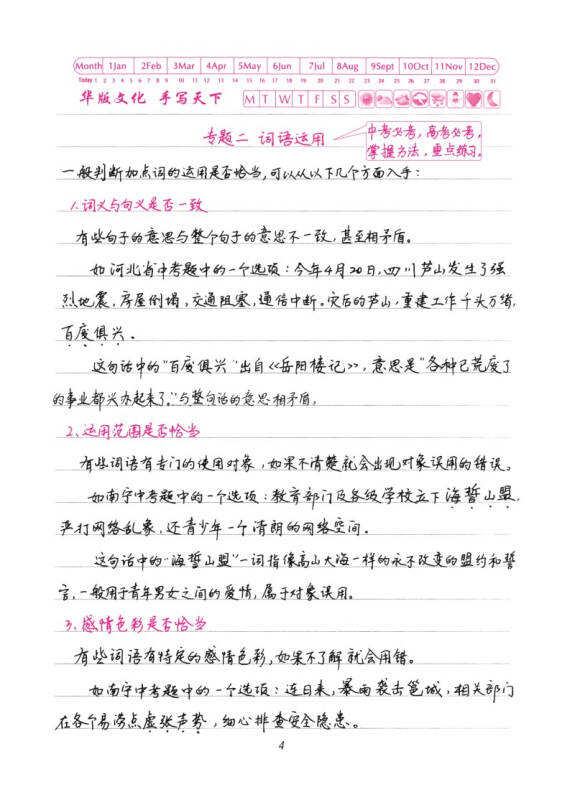 Month 1Jan 2Feb 3Mar 4Apr 5May 6Jun 7Jul 8Aug 9Sept 10Oct 11Nov 12Dec
Today 1 2 3 4 5 6 7 8 9 10 11 12 13 14 15 16 17 18 19 20 21 22 23 24 25 26 27 28 29 30 31
华版文化 手写天下 M T W T F S S
专题二 词语运用
中考必考,高考必考,
掌握方法,重点练习。
一般判断加点词的运用是否恰当,可以从以下几个方面入手:
1.词义与句义是否一致
有些句子的意思与整个句子的意思不一致,甚至相矛盾。
如河北省中考题中的一个选项:今年4月20日,四川芦山发生了强
烈地震,房屋倒塌,交通阻塞,通信中断。灾后的芦山,重建工作千头万绪,
百废俱兴。
这句话中的“百废俱兴”出自《岳阳楼记》,意思是“各种已荒废了
的事业都兴办起来了。”与整句话的意思相矛盾。
2、运用范围是否恰当
有些词语有专门的使用对象,如果不清楚就会出现对象误用的错误。
如南宁中考题中的一个选项:教育部门及各级学校立下海誓山盟,
严打网络乱象,还青少年一个清朗的网络空间。
这句话中的“海誓山盟”一词指像高山大海一样的永不改变的盟约和誓
言,一般用于青年男女之间的爱情,属于对象误用。
3、感情色彩是否恰当
有些词语有特定的感情色彩,如果不了解就会用错。
如南宁中考题中的一个选项:连日来,暴雨袭击邕城,相关部门
在各个易涝点虚张声势,细心排查安全隐患。
4